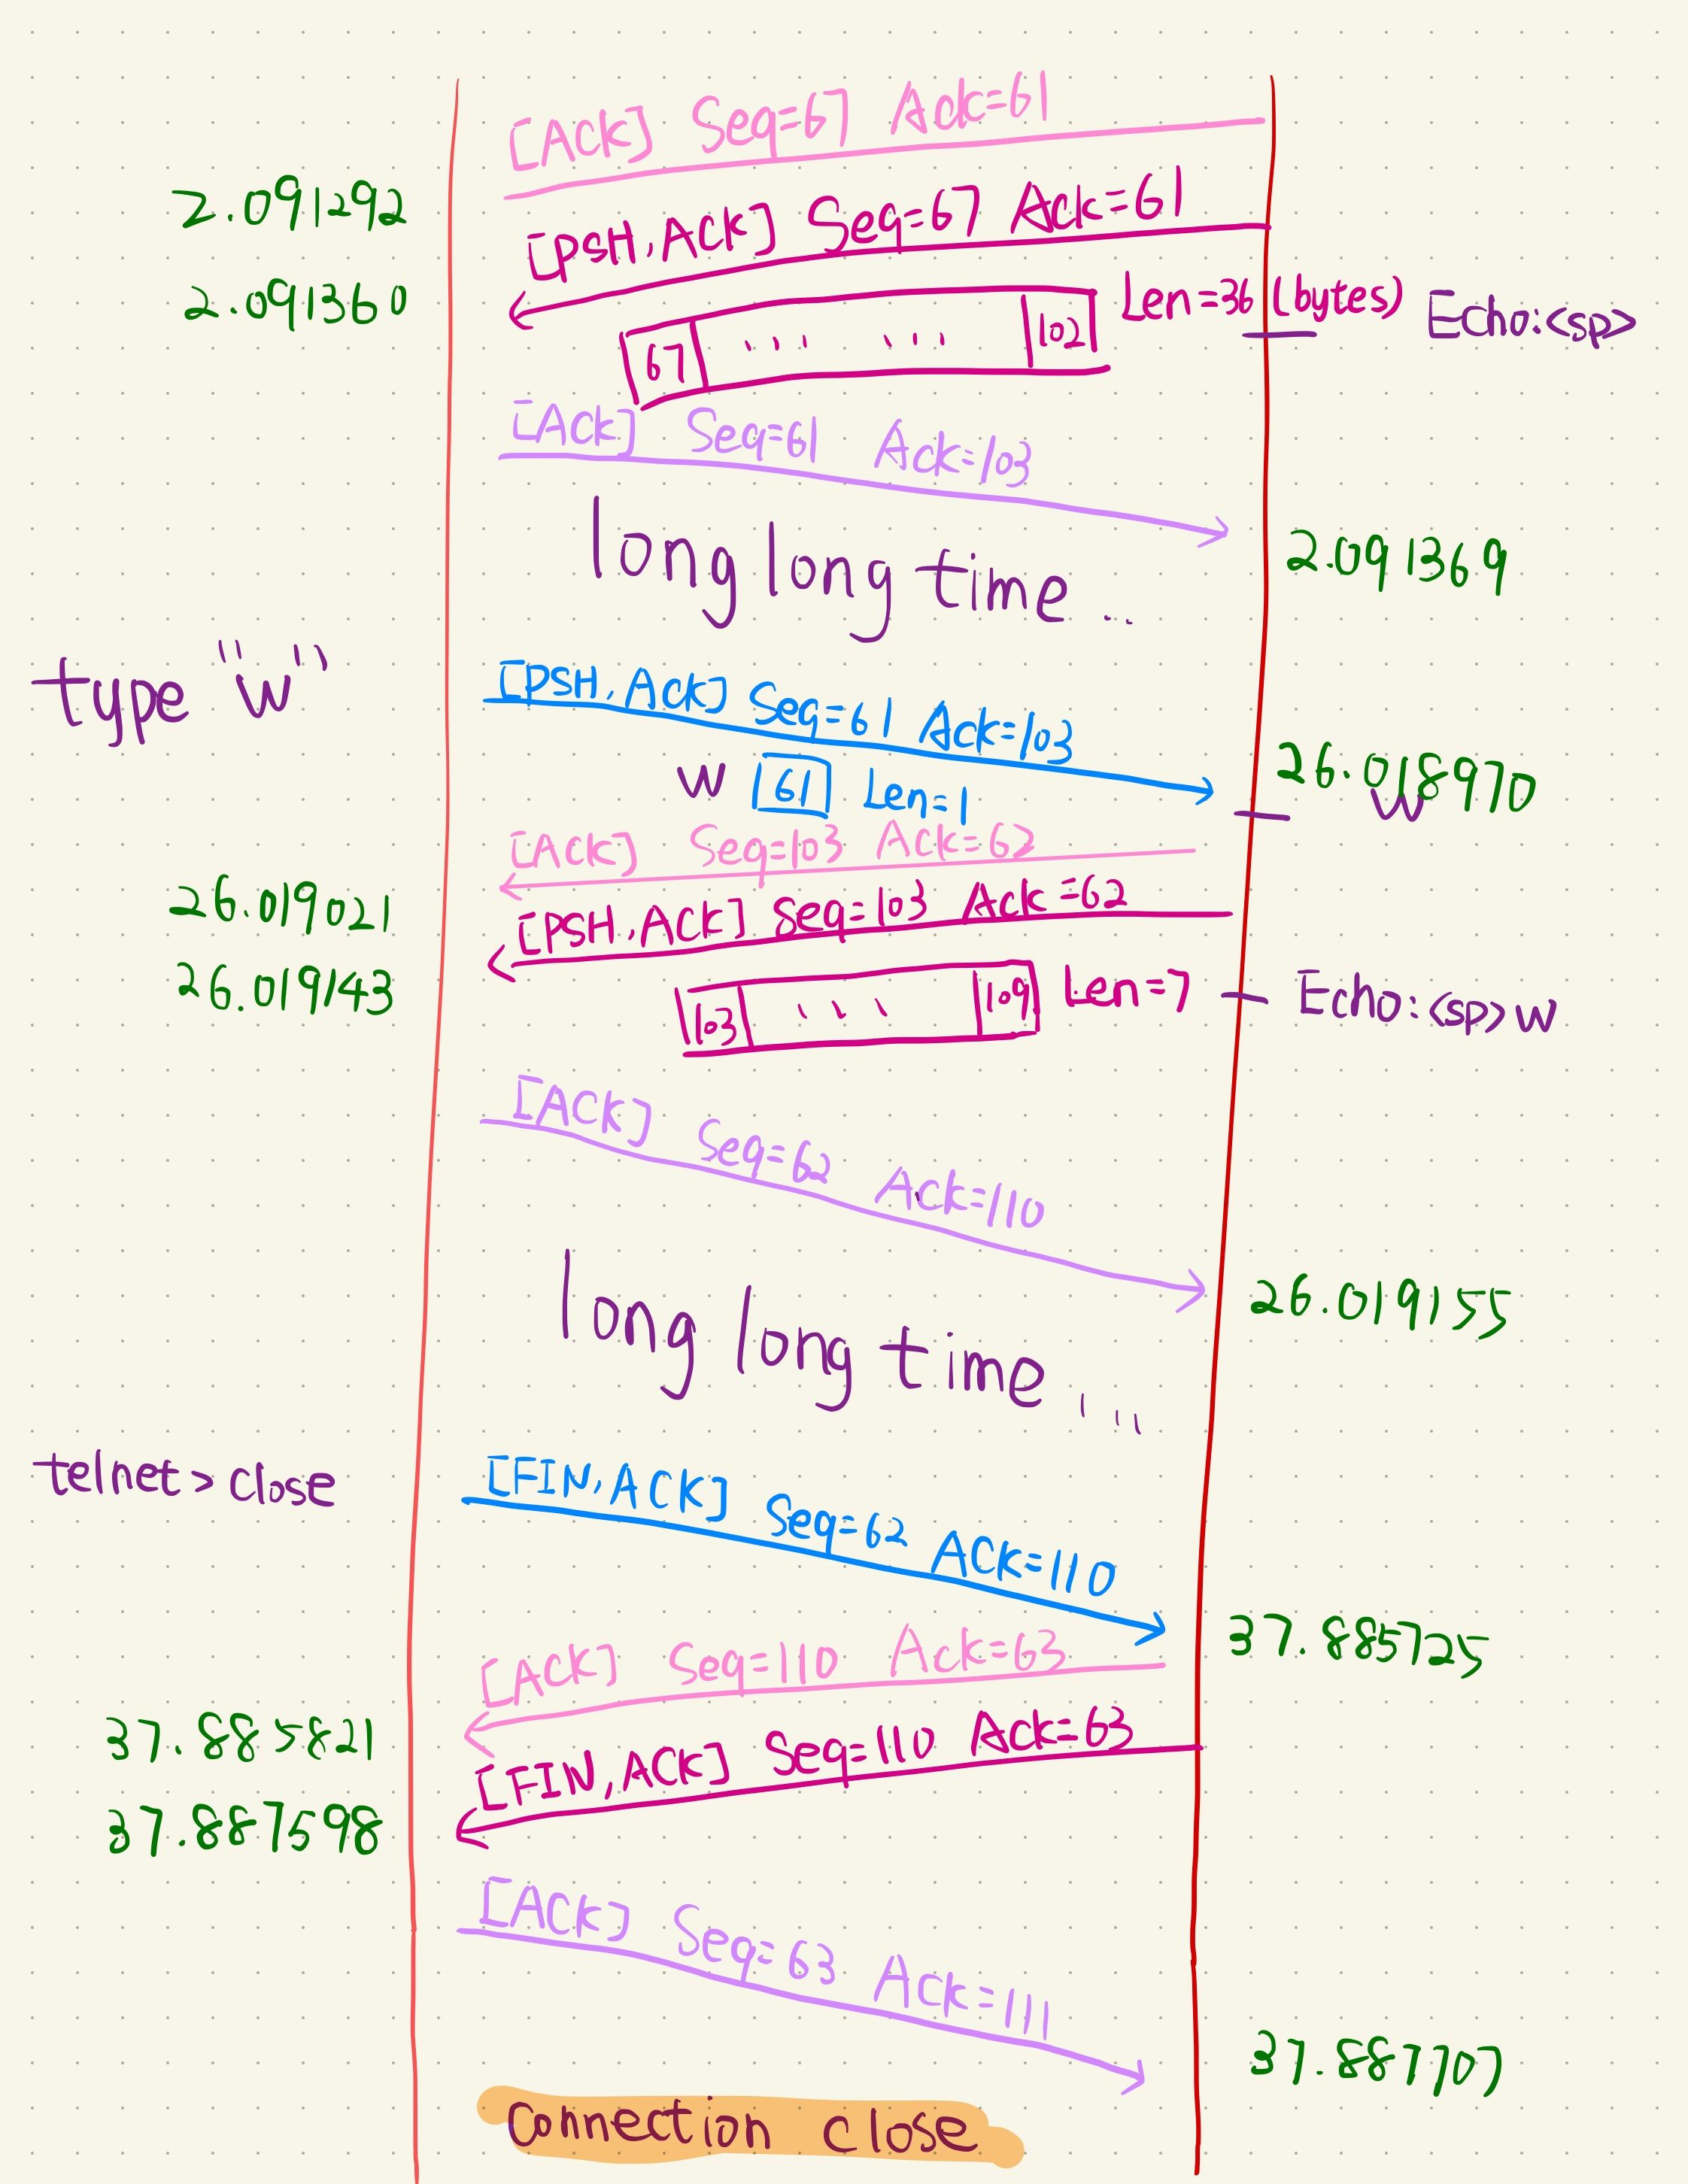 [ACK] Seq=67 Ack=61
2.091292
[PSH,ACK] Seq=67 Ack=61
2.091360
Len=36 (bytes)
Echo:<sp>
67 ... ... 102
[ACK] Seq=61 Ack=103
2.091369
long long time...
type "w"
[PSH,Ack] Seq=61 Ack=103
26.018970
w 61 Len=1
w
[ACK] Seq=103 Ack=62
26.019021
[PSH,ACK] Seq=103 Ack=62
26.019143
103 ... 109 Len=7
Echo:<sp>w
[ACK] Seq=62 Ack=110
26.019155
long long time...
telnet> close
[FIN,ACK] Seq=62 ACK=110
37.885725
[ACK] Seq=110 Ack=63
37.885821
[FIN,ACK] Seq=110 Ack=63
37.887598
[ACK] Seq=63 Ack=111
37.887707
connection close